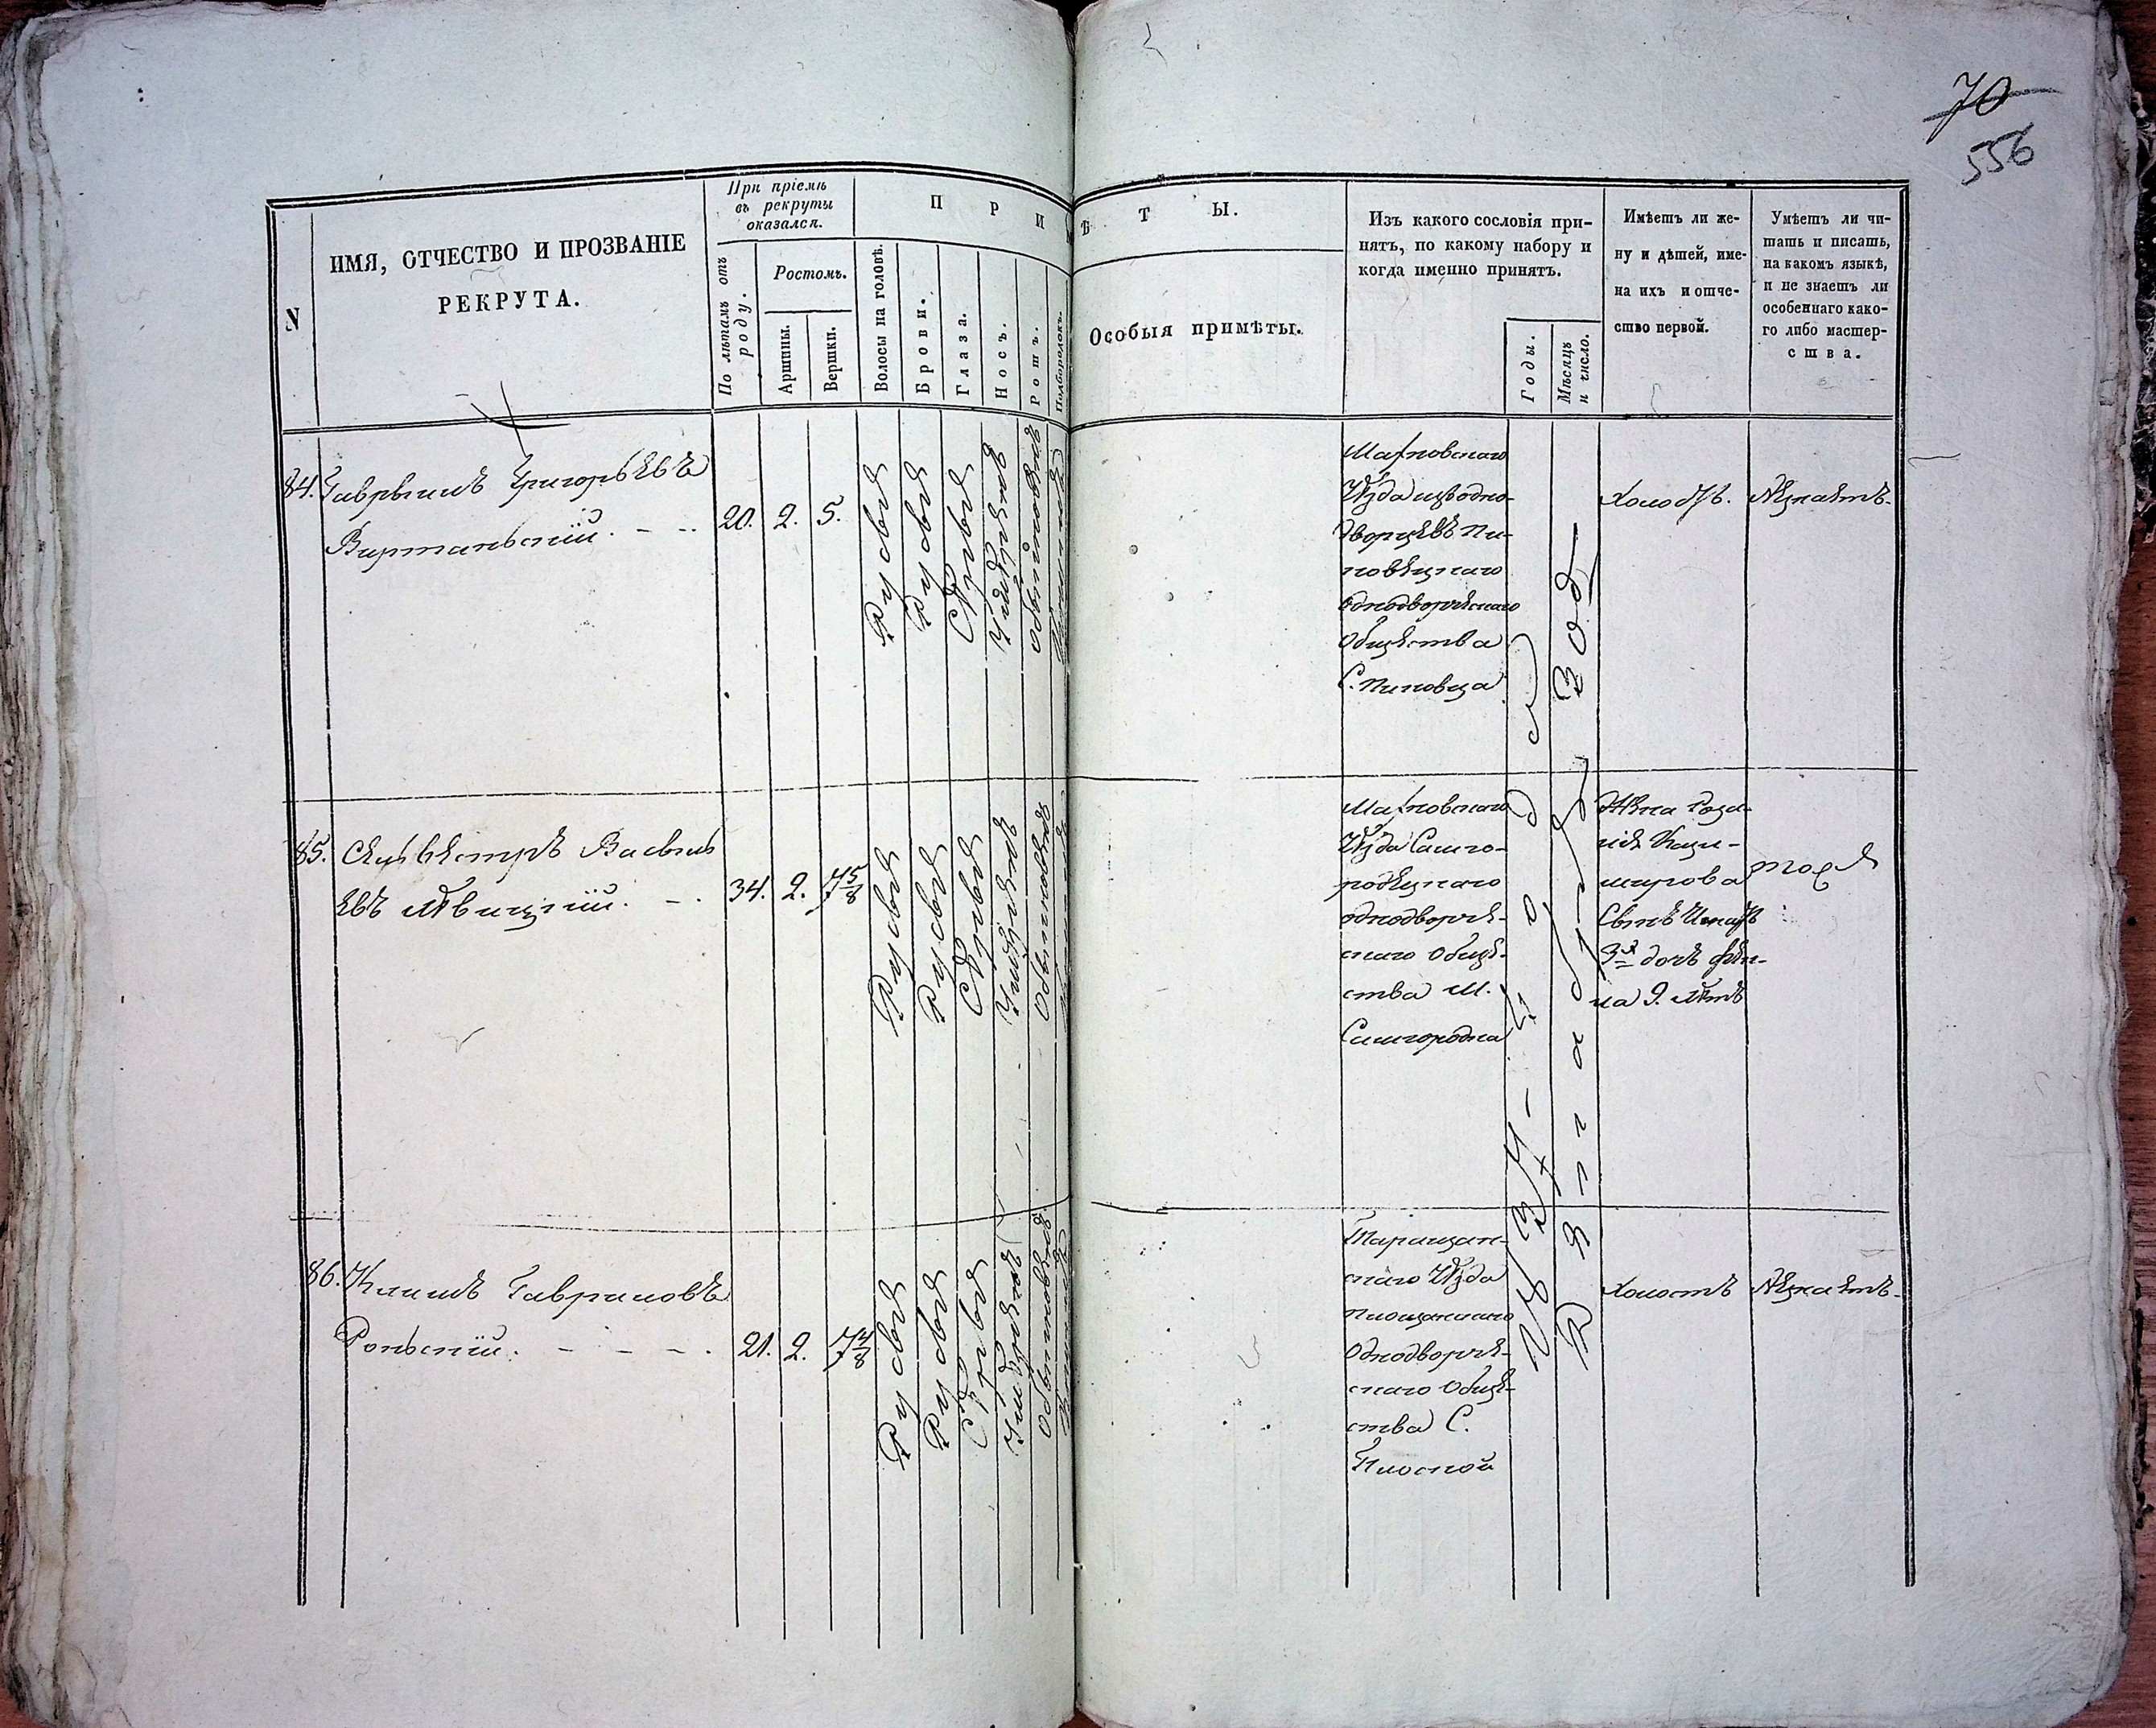 70
556
N
ИМЯ, ОТЧЕСТВО И ПРОЗВАНІЕ
РЕКРУТА.
При пріемѣ
въ рекруты
оказался.
По лѣтамъ отъ
роду.
Ростомъ.
Аршины.
Вершки.
П Р И Ѣ Т Ы.
Волосы на головѣ.
Брови.
Глаза.
Носъ.
Ротъ.
Подбородокъ.
Особыя примѣты.
Изъ какого сословія при-
нятъ, по какому набору и
когда именно принятъ.
Годы.
Мѣсяцъ
и число.
Имѣетъ ли же-
ну и дѣтей, име-
на ихъ и отче-
ство первой.
Умѣетъ ли чи-
тать и писать,
на какомъ языкѣ,
и не знаетъ ли
особеннаго како-
го либо мастер-
ства.
84. Григорьевъ
20. 2. 5.
Русые
Русые
Сѣрые
Умѣренъ
обыкновенъ
Махновскаго
Уѣзда изъ одно-
дворцевъ Пи-
ковецкаго
однодворческаго
общества
С. Пиковца
Холостъ.
Незнаетъ.
85. Сельвестръ Василь
евъ Левицкій.
34. 2. 7 5/8
Русые
Русые
Сѣрые
Умѣренъ
обыкновенъ
Махновскаго
Уѣзда Самго-
родецкаго
однодворче-
скаго обще-
ства М.
Самгородка
Жена Роза-
лія Кази-
мирова
дочь
9. лѣтъ
тоже
86. Климъ Гавриловъ
Рольскій.
21. 2. 7 4/8
Русые
Русые
Сѣрые
Умѣренъ
обыкновенъ
Таращан-
скаго Уѣзда
Плоскаго
Однодворче-
скаго обще-
ства С.
Плоской
Холостъ
Незнаетъ.
1834 – года